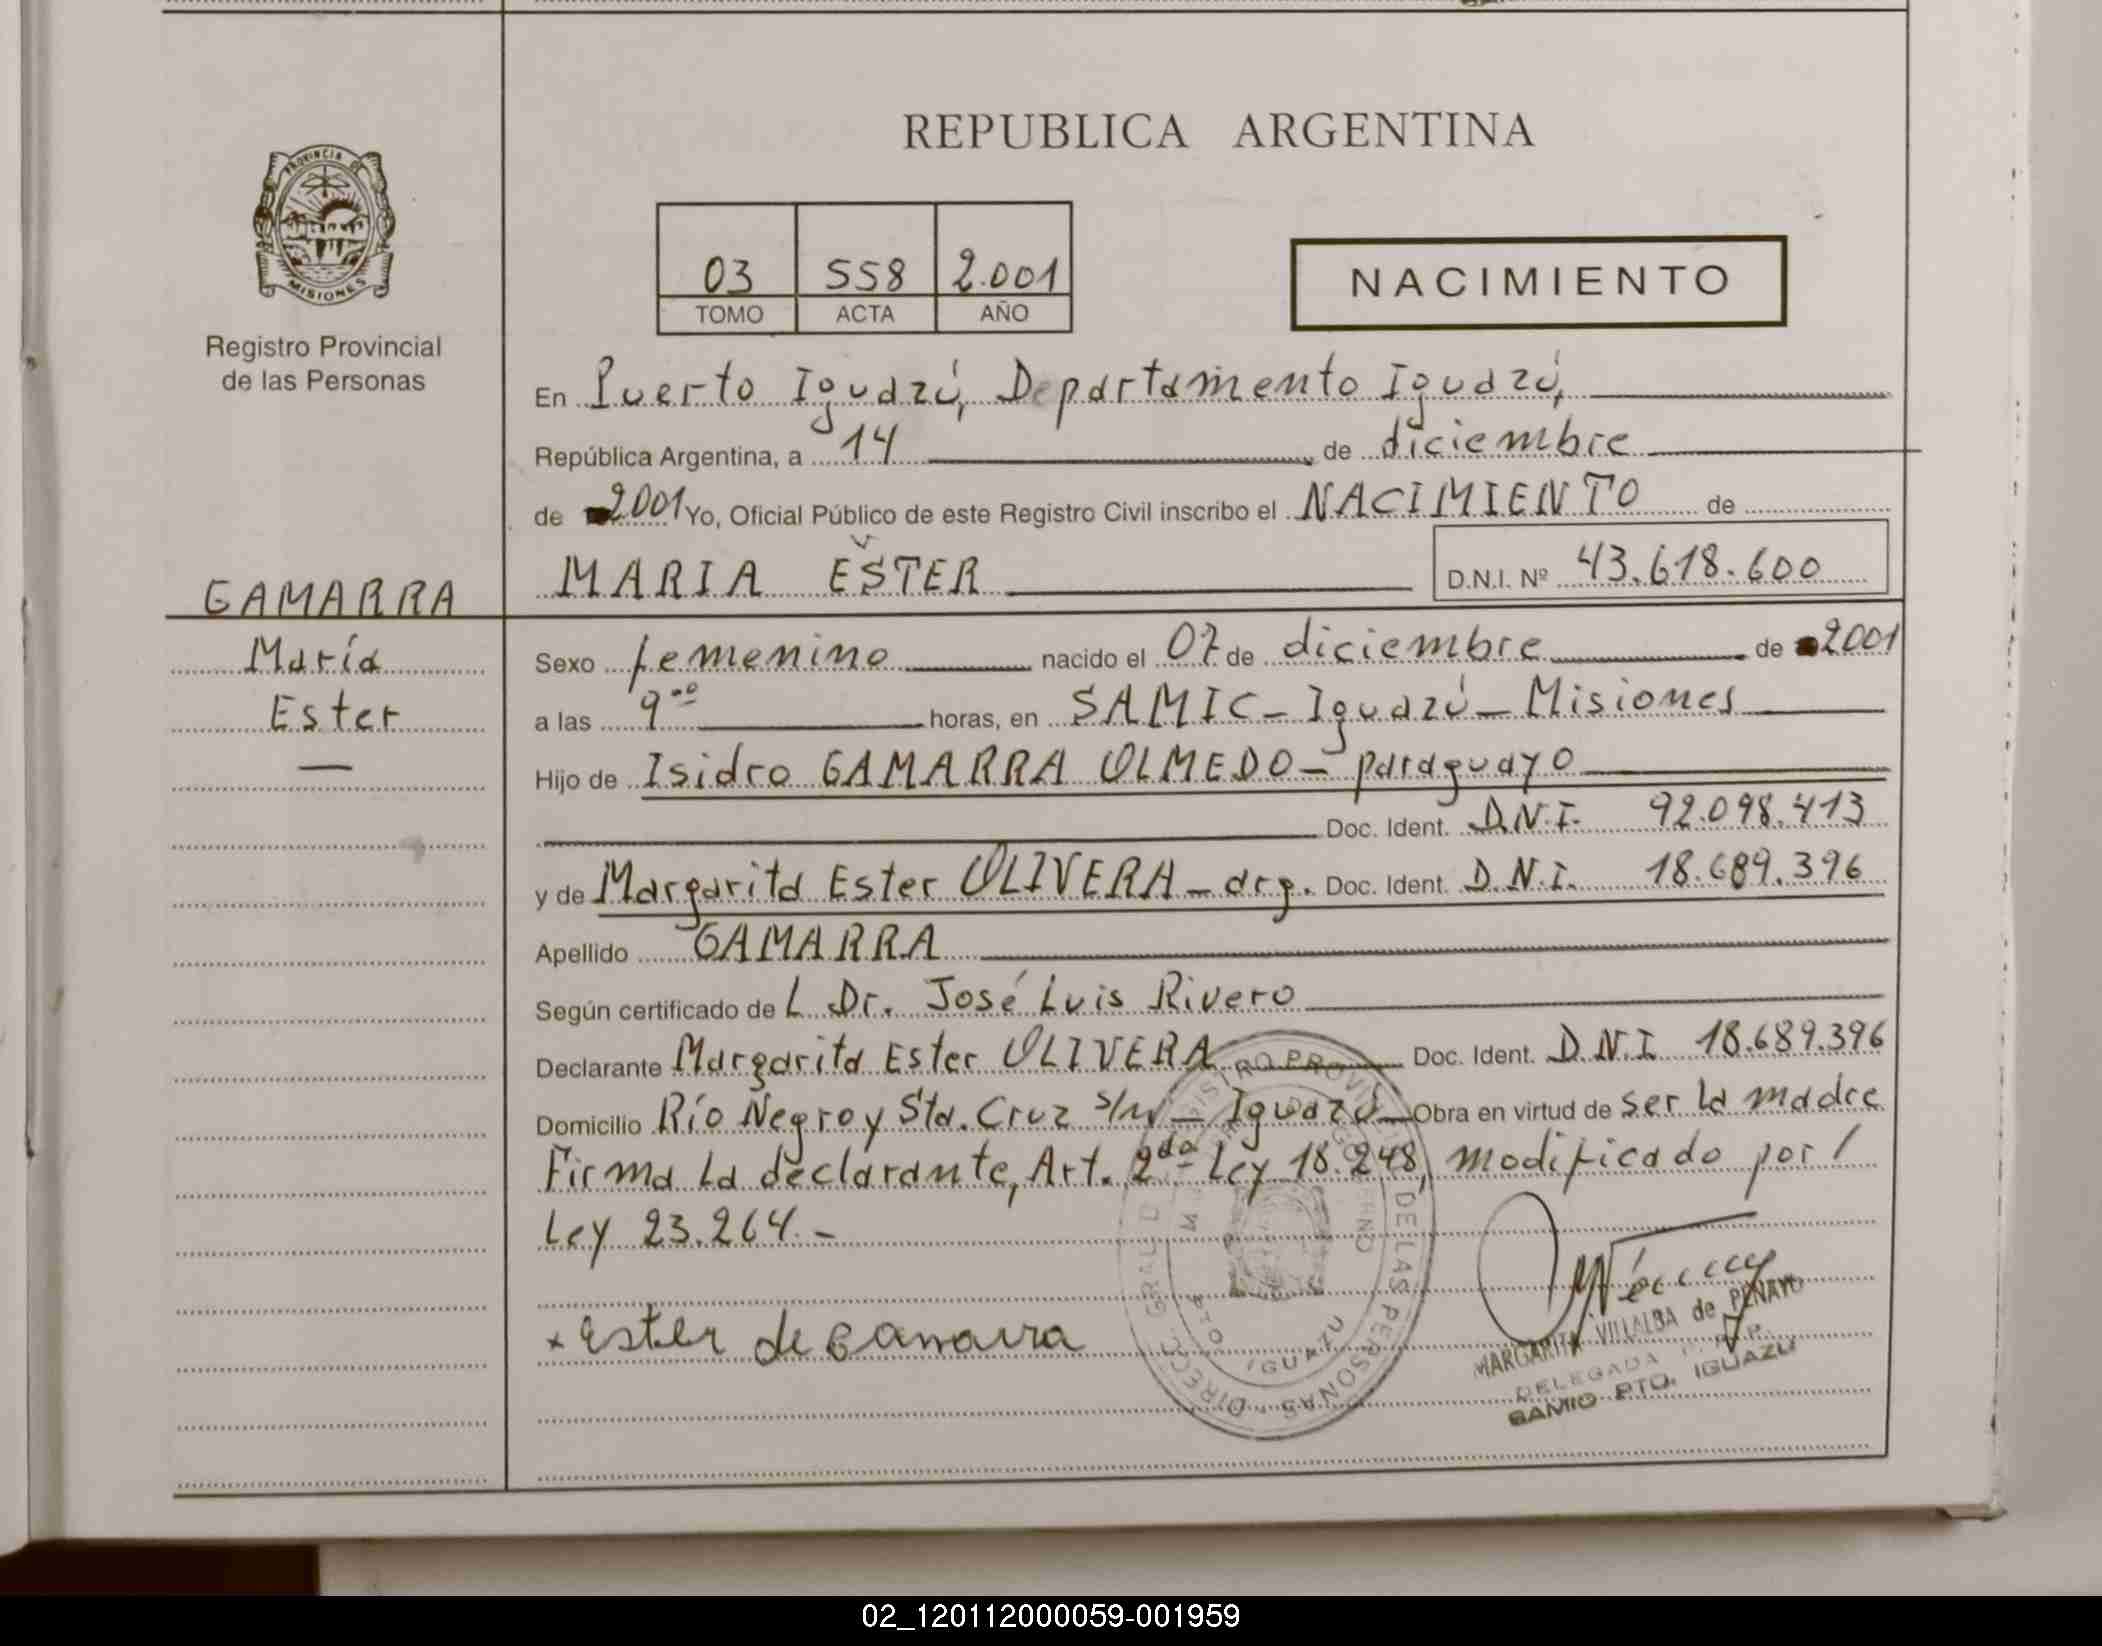 REPUBLICA ARGENTINA
PROVINCIA DE
MISIONES
Registro Provincial
de las Personas
03 558 2.001
TOMO ACTA AÑO
NACIMIENTO
En Puerto Iguazú, Departamento Iguazú,
República Argentina, a 14 de diciembre
de 2001 Yo, Oficial Público de este Registro Civil inscribo el NACIMIENTO de
MARIA ESTER D.N.I. Nº 43.618.600
GAMARRA
María
Ester
Sexo femenino nacido el 07 de diciembre de 2001
a las 9 ºº horas, en SAMIC - Iguazú - Misiones
Hijo de Isidro GAMARRA OLMEDO - paraguayo
Doc. Ident. D.N.I. 92.098.413
y de Margarita Ester OLIVERA - arg. Doc. Ident. D.N.I. 18.689.396
Apellido GAMARRA
Según certificado de L Dr. José Luis Rivero
Declarante Margarita Ester OLIVERA Doc. Ident. D.N.I 18.689.396
Domicilio Río Negro y Sta. Cruz s/n - Iguazú Obra en virtud de ser la madre
Firma la declarante, Art. 2da Ley 18.248, modificado por /
Ley 23.264. -
x Ester de Gamarra
MARGARITA VILLALBA de PENAYO
DELEGADA
PTO. IGUAZU
DIRECC. GRAL. DEL REGISTRO PROVINCIAL DE LAS PERSONAS
IGUAZU
02_120112000059-001959